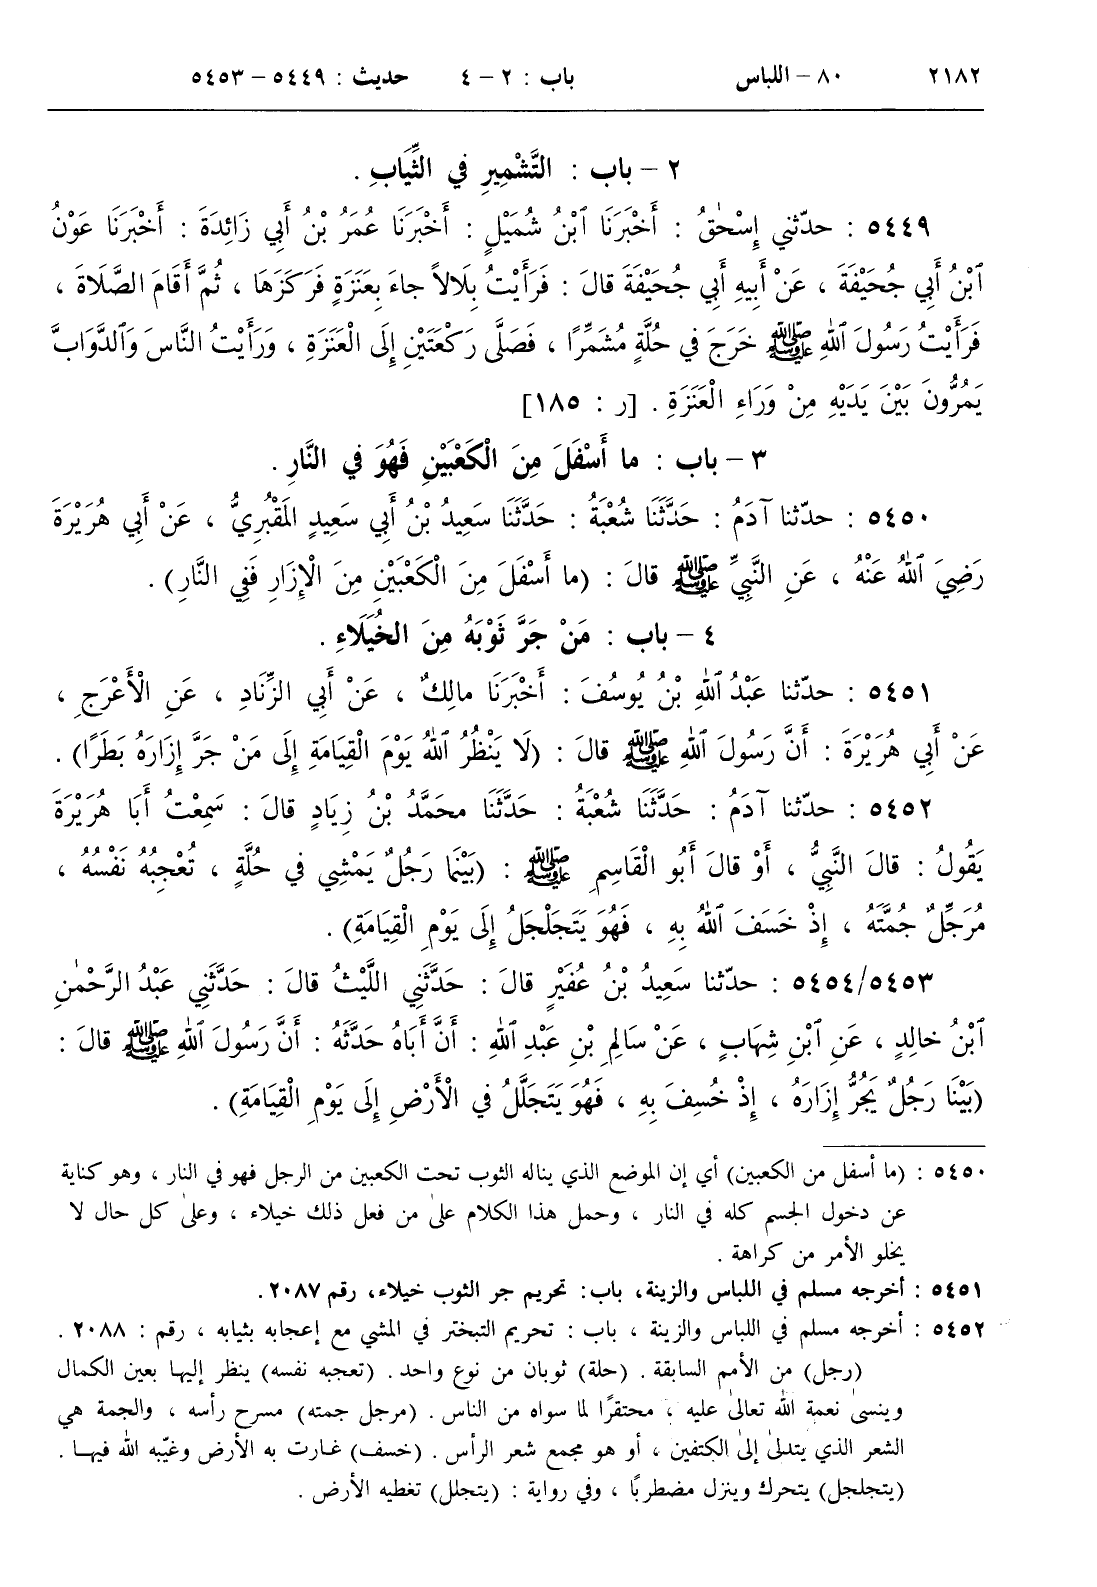 ٢١٨٢ ٨٠ – اللباس باب : ٢ – ٤ حديث : ٥٤٤٩ – ٥٤٥٣
٢ – باب : التَّشْمِيرِ في الثِّيَابِ .
٥٤٤٩ : حدّثني إِسْحٰقُ : أَخْبَرَنَا ٱبْنُ شُمَيْلٍ : أَخْبَرَنَا عُمَرُ بْنُ أَبِي زَائِدَةَ : أَخْبَرَنَا عَوْنُ
ٱبْنُ أَبِي جُحَيْفَةَ ، عَنْ أَبِيهِ أَبِي جُحَيْفَةَ قالَ : فَرَأَيْتُ بِلَالاً جاءَ بِعَنَزَةٍ فَرَكَزَهَا ، ثُمَّ أَقَامَ الصَّلَاةَ ،
فَرَأَيْتُ رَسُولَ ٱللهِ ﷺ خَرَجَ في حُلَّةٍ مُشَمِّرًا ، فَصَلَّى رَكْعَتَيْنِ إِلَى الْعَنَزَةِ ، وَرَأَيْتُ النَّاسَ وَٱلدَّوَابَّ
يَمُرُّونَ بَيْنَ يَدَيْهِ مِنْ وَرَاءِ الْعَنَزَةِ . [ر : ١٨٥]
٣ – باب : ما أَسْفَلَ مِنَ الْكَعْبَيْنِ فَهُوَ في النَّارِ .
٥٤٥٠ : حدّثنا آدَمُ : حَدَّثَنَا شُعْبَةُ : حَدَّثَنَا سَعِيدُ بْنُ أَبِي سَعِيدٍ المَقْبُرِيُّ ، عَنْ أَبِي هُرَيْرَةَ
رَضِيَ ٱللهُ عَنْهُ ، عَنِ النَّبِيِّ ﷺ قالَ : (ما أَسْفَلَ مِنَ الْكَعْبَيْنِ مِنَ الْإِزَارِ فَفِي النَّارِ) .
٤ – باب : مَنْ جَرَّ ثَوْبَهُ مِنَ الخُيَلَاءِ .
٥٤٥١ : حدّثنا عَبْدُ ٱللهِ بْنُ يُوسُفَ : أَخْبَرَنَا مالِكٌ ، عَنْ أَبِي الزِّنَادِ ، عَنِ الْأَعْرَجِ ،
عَنْ أَبِي هُرَيْرَةَ : أَنَّ رَسُولَ ٱللهِ ﷺ قالَ : (لَا يَنْظُرُ ٱللهُ يَوْمَ الْقِيَامَةِ إِلَى مَنْ جَرَّ إِزَارَهُ بَطَرًا) .
٥٤٥٢ : حدّثنا آدَمُ : حَدَّثَنَا شُعْبَةُ : حَدَّثَنَا محَمَّدُ بْنُ زِيَادٍ قالَ : سَمِعْتُ أَبَا هُرَيْرَةَ
يَقُولُ : قالَ النَّبِيُّ ، أَوْ قالَ أَبُو الْقَاسِمِ ﷺ : (بَيْنَما رَجُلٌ يَمْشِي في حُلَّةٍ ، تُعْجِبُهُ نَفْسُهُ ،
مُرَجِّلٌ جُمَّتَهُ ، إِذْ خَسَفَ ٱللهُ بِهِ ، فَهُوَ يَتَجَلْجَلُ إِلَى يَوْمِ الْقِيَامَةِ) .
٥٤٥٤/٥٤٥٣ : حدّثنا سَعِيدُ بْنُ عُفَيْرٍ قالَ : حَدَّثَنِي اللَّيْثُ قالَ : حَدَّثَنِي عَبْدُ الرَّحْمٰنِ
ٱبْنُ خالِدٍ ، عَنِ ٱبْنِ شِهَابٍ ، عَنْ سَالِمِ بْنِ عَبْدِ ٱللهِ : أَنَّ أَبَاهُ حَدَّثَهُ : أَنَّ رَسُولَ ٱللهِ ﷺ قالَ :
(بَيْنَا رَجُلٌ يَجُرُّ إِزَارَهُ ، إِذْ خُسِفَ بِهِ ، فَهُوَ يَتَجَلَّلُ في الْأَرْضِ إِلَى يَوْمِ الْقِيَامَةِ) .
٥٤٥٠ : (ما أسفل من الكعبين) أي إن الموضع الذي يناله الثوب تحت الكعبين من الرجل فهو في النار ، وهو كناية
عن دخول الجسم كله في النار ، وحمل هذا الكلام علىٰ من فعل ذلك خيلاء ، وعلىٰ كل حال لا
يخلو الأمر من كراهة .
٥٤٥١ : أخرجه مسلم في اللباس والزينة، باب: تحريم جر الثوب خيلاء، رقم ٢٠٨٧ .
٥٤٥٢ : أخرجه مسلم في اللباس والزينة ، باب : تحريم التبختر في المشي مع إعجابه بثيابه ، رقم : ٢٠٨٨ .
(رجل) من الأمم السابقة . (حلة) ثوبان من نوع واحد . (تعجبه نفسه) ينظر إليها بعين الكمال
وينسىٰ نعمة الله تعالىٰ عليه ، محتقرًا لما سواه من الناس . (مرجل جمته) مسرح رأسه ، والجمة هي
الشعر الذي يتدلىٰ إلىٰ الكتفين ، أو هو مجمع شعر الرأس . (خسف) غارت به الأرض وغيّبه الله فيها .
(يتجلجل) يتحرك وينزل مضطربًا ، وفي رواية : (يتجلل) تغطيه الأرض .